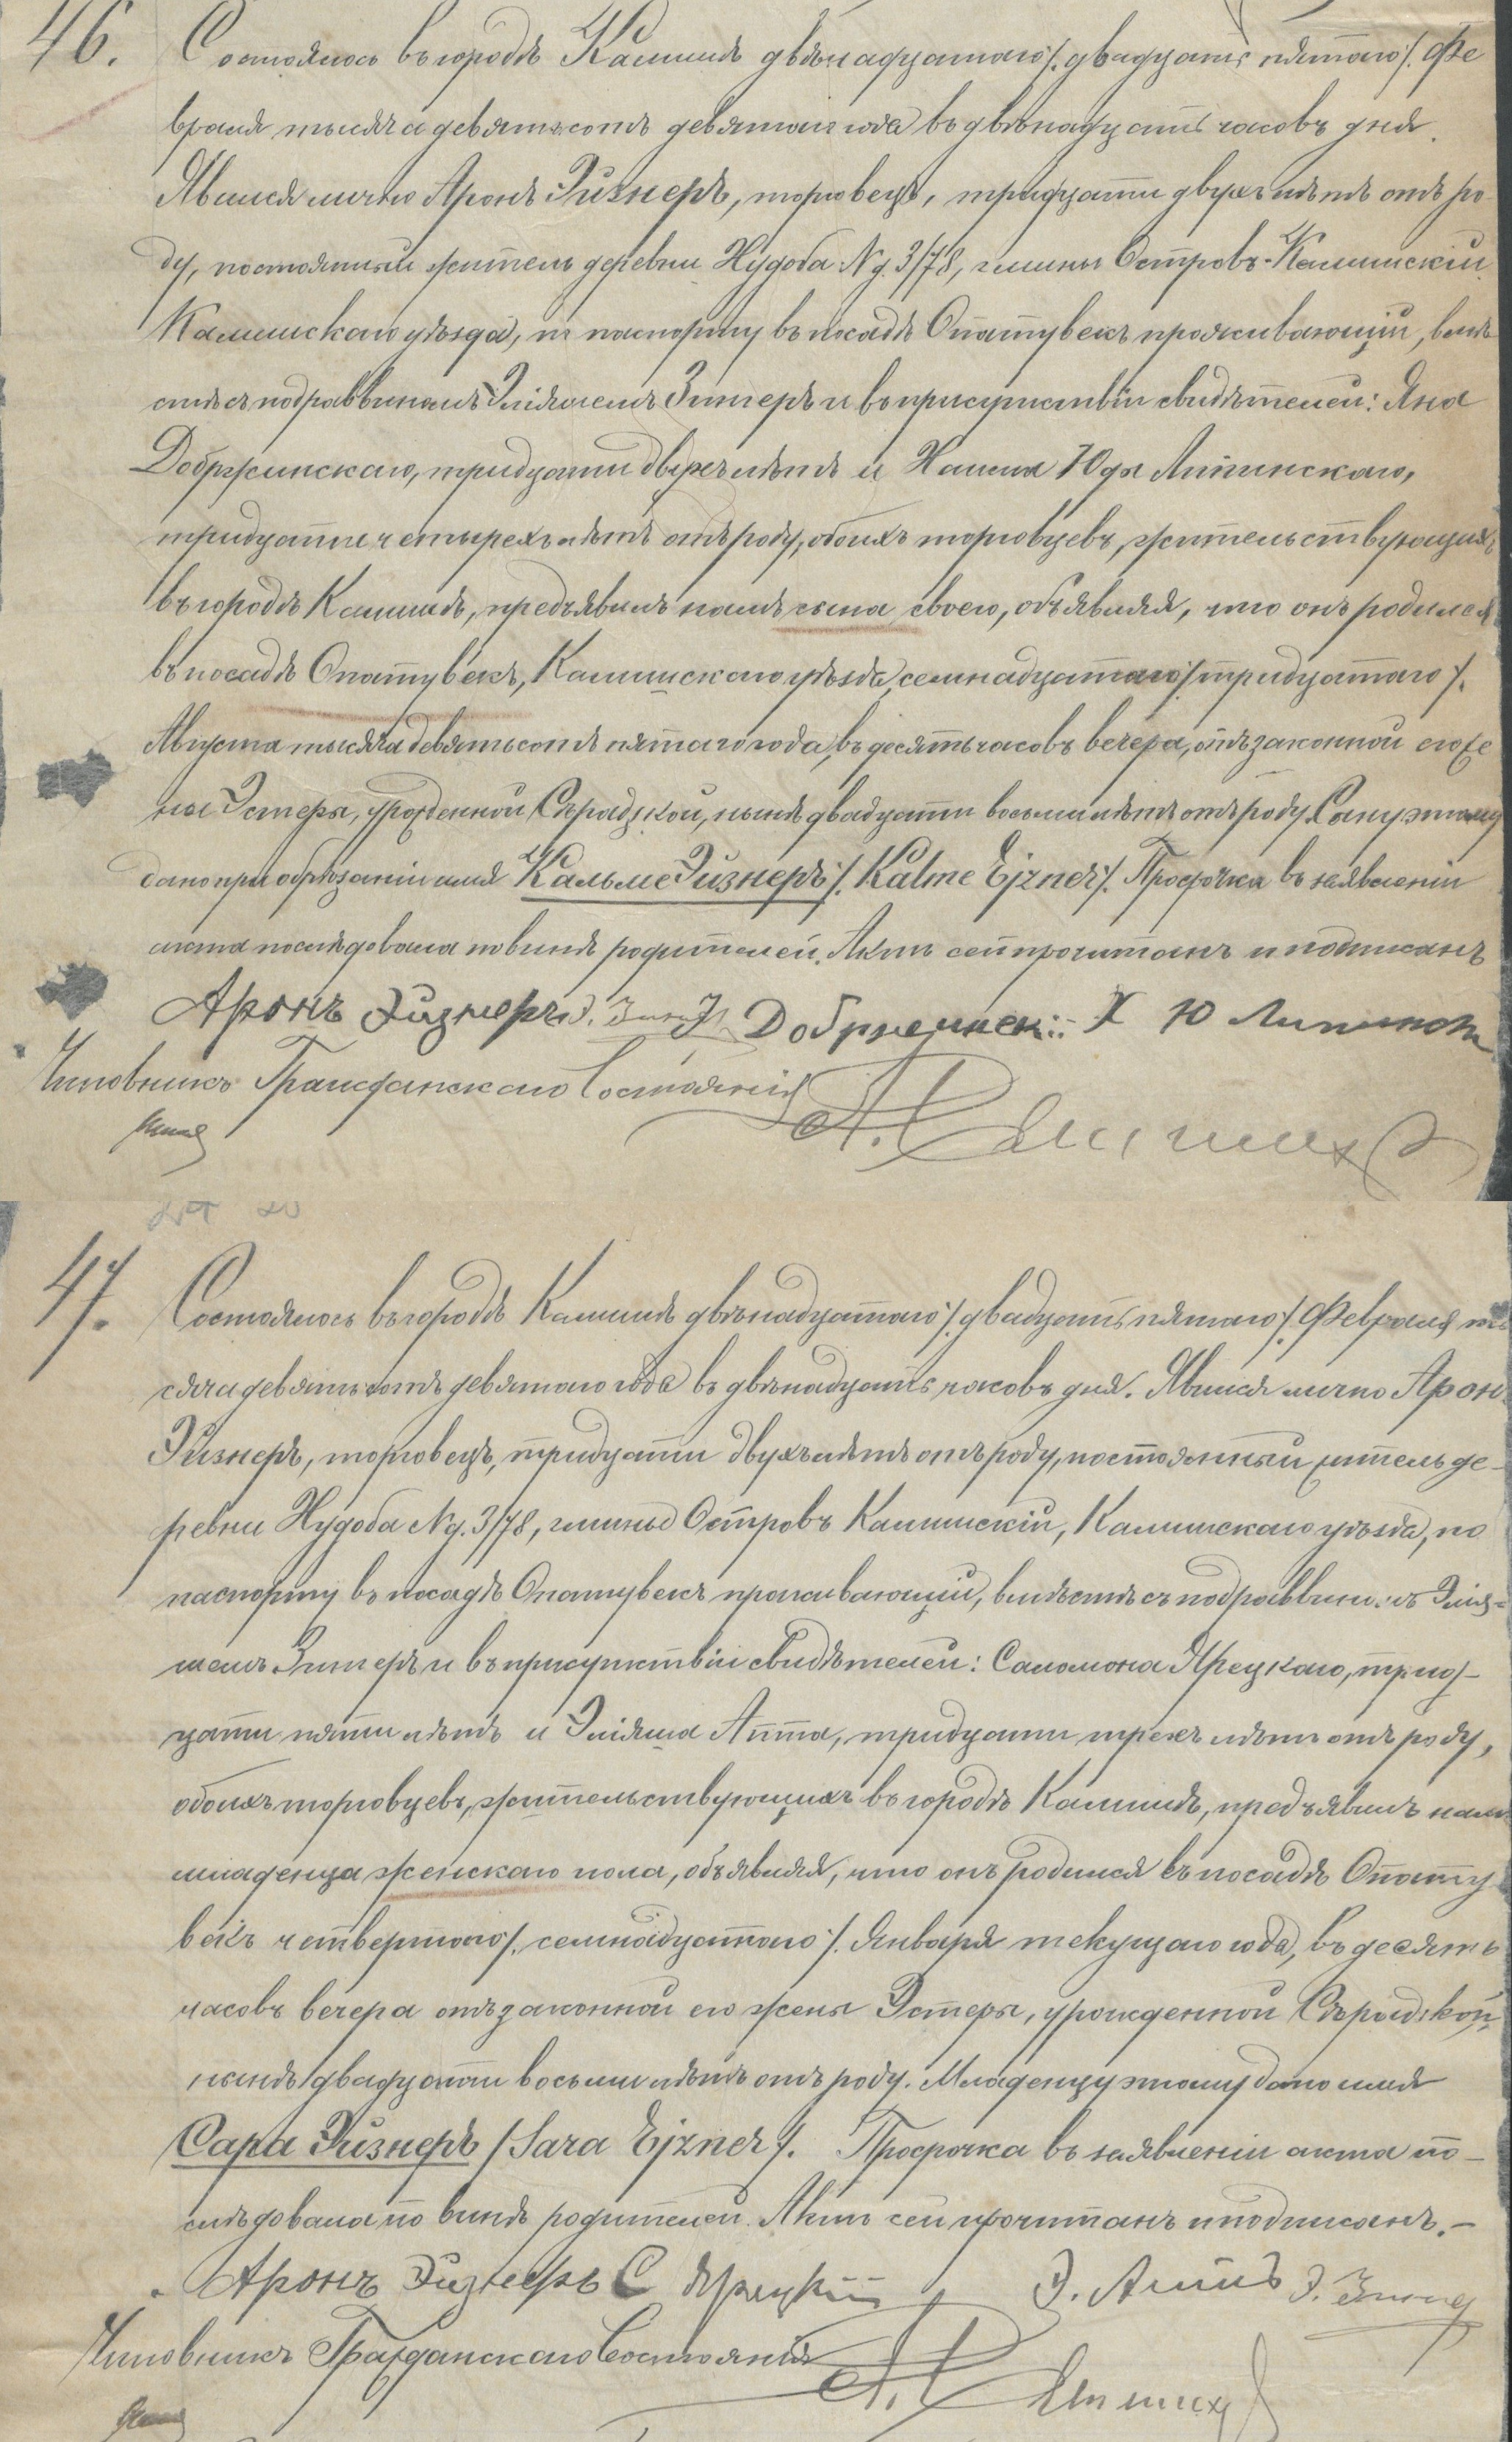 46.
Состоялось въ городѣ Калишѣ двѣнадцатаго /. двадцать пятаго /. Фе
враля тысяча девятьсотъ девятаго года въ двѣнадцать часовъ дня.
Явился лично Аронъ Эйзнеръ, торговецъ, тридцати двухъ лѣтъ отъ ро
ду, постоянный житель деревни Нудоба Nд. 3/78, гмины Островъ-Калишскій
Калишскаго уѣзда, по паспорту въ посадѣ Опатувекъ проживающій, вмѣ
стѣ съ подраввиномъ Эліяшемъ Зингеръ и въ присутствіи свидѣтелей: Яна
Добржинскаго, тридцати двухъ лѣтъ и Хаима Юды Липинскаго,
тридцати четырехъ лѣтъ отъ роду, обоихъ торговцевъ, жительствующихъ
въ городѣ Калишѣ, предъявилъ намъ сына своего, объявляя, что онъ родился
въ посадѣ Опатувекъ, Калишскаго уѣзда, семнадцатаго /. тридцатаго /.
Августа тысяча девятьсотъ пятаго года, въ десять часовъ вечера, отъ законной его же
ны Эстеры, урожденной Сѣрадзкой, нынѣ двадцати восьми лѣтъ отъ роду. Сыну этому
дано при обрѣзаніи имя Кальме Эйзнеръ /. Kalme Ejzner /. Просрочка въ заявленіи
акта послѣдовала по винѣ родителей. Актъ сей прочитанъ и подписанъ
Аронъ Эйзнеръ Э. Зингеръ Добржинскій Х Ю Липинскій
Чиновникъ Гражданскаго Состоянія
47.
Состоялось въ городѣ Калишѣ двѣнадцатаго /. двадцать пятаго /. Февраля ты
сяча девятьсотъ девятаго года въ двѣнадцать часовъ дня. Явился лично Аронъ
Эйзнеръ, торговецъ, тридцати двухъ лѣтъ отъ роду, постоянный житель де-
ревни Нудоба Nд. 3/78, гмины Островъ Калишскій, Калишскаго уѣзда, по
паспорту въ посадѣ Опатувекъ проживающій, вмѣстѣ съ подраввиномъ Элія-
шемъ Зингеръ и въ присутствіи свидѣтелей: Саломона Ярецкаго, трид-
цати пяти лѣтъ и Эліяша Апта, тридцати трехъ лѣтъ отъ роду,
обоихъ торговцевъ, жительствующихъ въ городѣ Калишѣ, предъявилъ намъ
младенца женскаго пола, объявляя, что онъ родился въ посадѣ Опату
векъ четвертаго /. семнадцатаго /. Января текущаго года, въ десять
часовъ вечера отъ законной его жены Эстеры, урожденной Сѣрадзкой,
нынѣ двадцати восьми лѣтъ отъ роду. Младенцу этому дано имя
Сара Эйзнеръ /. Sara Ejzner /. Просрочка въ заявленіи акта по-
слѣдовала по винѣ родителей. Актъ сей прочитанъ и подписанъ.-
Аронъ Эйзнеръ С Ярецкій Э. Аптъ Э. Зингеръ
Чиновникъ Гражданскаго Состоянія